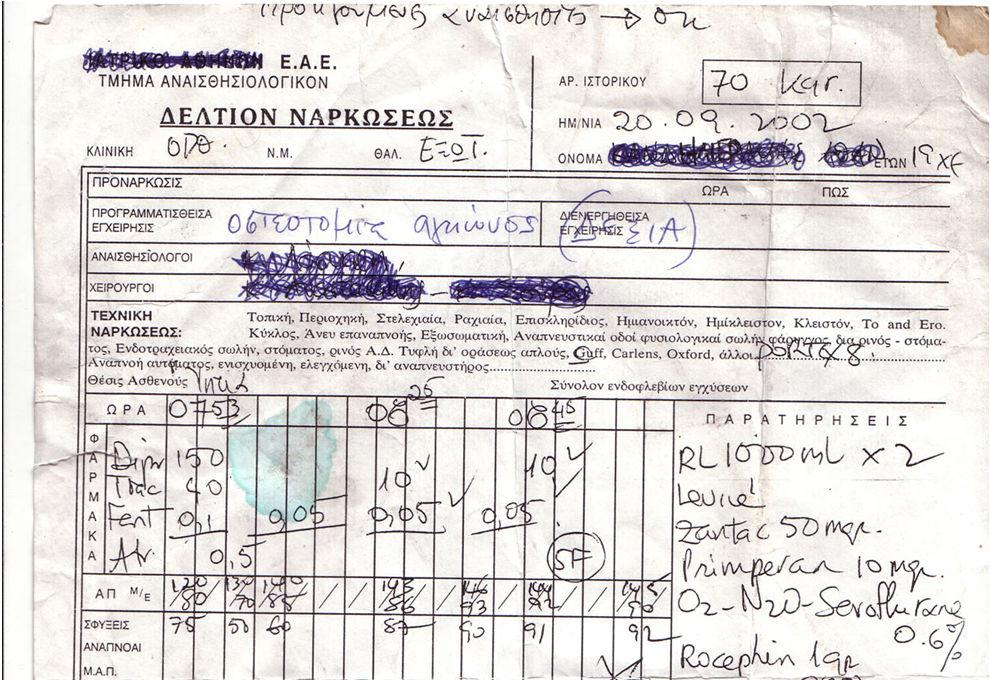 → OK
Ε.Α.Ε.
ΤΜΗΜΑ ΑΝΑΙΣΘΗΣΙΟΛΟΓΙΚΟΝ
ΑΡ. ΙΣΤΟΡΙΚΟΥ 70 καr.
ΔΕΛΤΙΟΝ ΝΑΡΚΩΣΕΩΣ
ΗΜ/ΝΙΑ 20.09.2002
ΚΛΙΝΙΚΗ ΟΡΘ. Ν.Μ. ΘΑΛ. ΕΞΩΤ.
ΟΝΟΜΑ ΕΤΩΝ 19
ΠΡΟΝΑΡΚΩΣΙΣ ΩΡΑ ΠΩΣ
ΠΡΟΓΡΑΜΜΑΤΙΣΘΕΙΣΑ ΕΓΧΕΙΡΗΣΙΣ οστεοτομία αγκώνος ΔΙΕΝΕΡΓΗΘΕΙΣΑ ΕΓΧΕΙΡΗΣΙΣ (ΔΕΞΙΑ)
ΑΝΑΙΣΘΗΣΙΟΛΟΓΟΙ
ΧΕΙΡΟΥΡΓΟΙ
ΤΕΧΝΙΚΗ ΝΑΡΚΩΣΕΩΣ: Τοπική, Περιοχική, Στελεχιαία, Ραχιαία, Επισκληρίδιος, Ημιανοικτόν, Ημίκλειστον, Κλειστόν, To and Fro.
Κύκλος, Άνευ επαναπνοής, Εξωσωματική, Αναπνευστικαί οδοί φυσιολογικαί σωλήν φάρυγγος, δια ρινός - στόμα-
τος, Ενδοτραχειακός σωλήν, στόματος, ρινός Α.Δ. Τυφλή δι' οράσεως απλούς, Guff, Carlens, Oxford, άλλοι PORTEX 8.
Αναπνοή αυτόματος, ενισχυομένη, ελεγχόμένη, δι' αναπνευστήρος
Θέσις Ασθενούς Σύνολον ενδοφλεβίων εγχύσεων
ΩΡΑ 0753 08 25 08 45
ΠΑΡΑΤΗΡΗΣΕΙΣ
ΦΑΡΜΑΚΑ
150
RL 1000ml x 2
Trac 40 10 10
Fent 0,1 0,05 0,05 0,05
Zantac 50 mgr.
Atr. 0,5 SF
Primperan 10 mgr.
ΑΠ Μ/Ε 120/80 130/70 140/85 145 146/93 144/92 145/90
O2-N2O-Sevoflurane
0.6%
ΣΦΥΞΕΙΣ 75 50 60 87 90 91 92
ΑΝΑΠΝΟΑΙ
Rocephin 1gr
Μ.Α.Π.